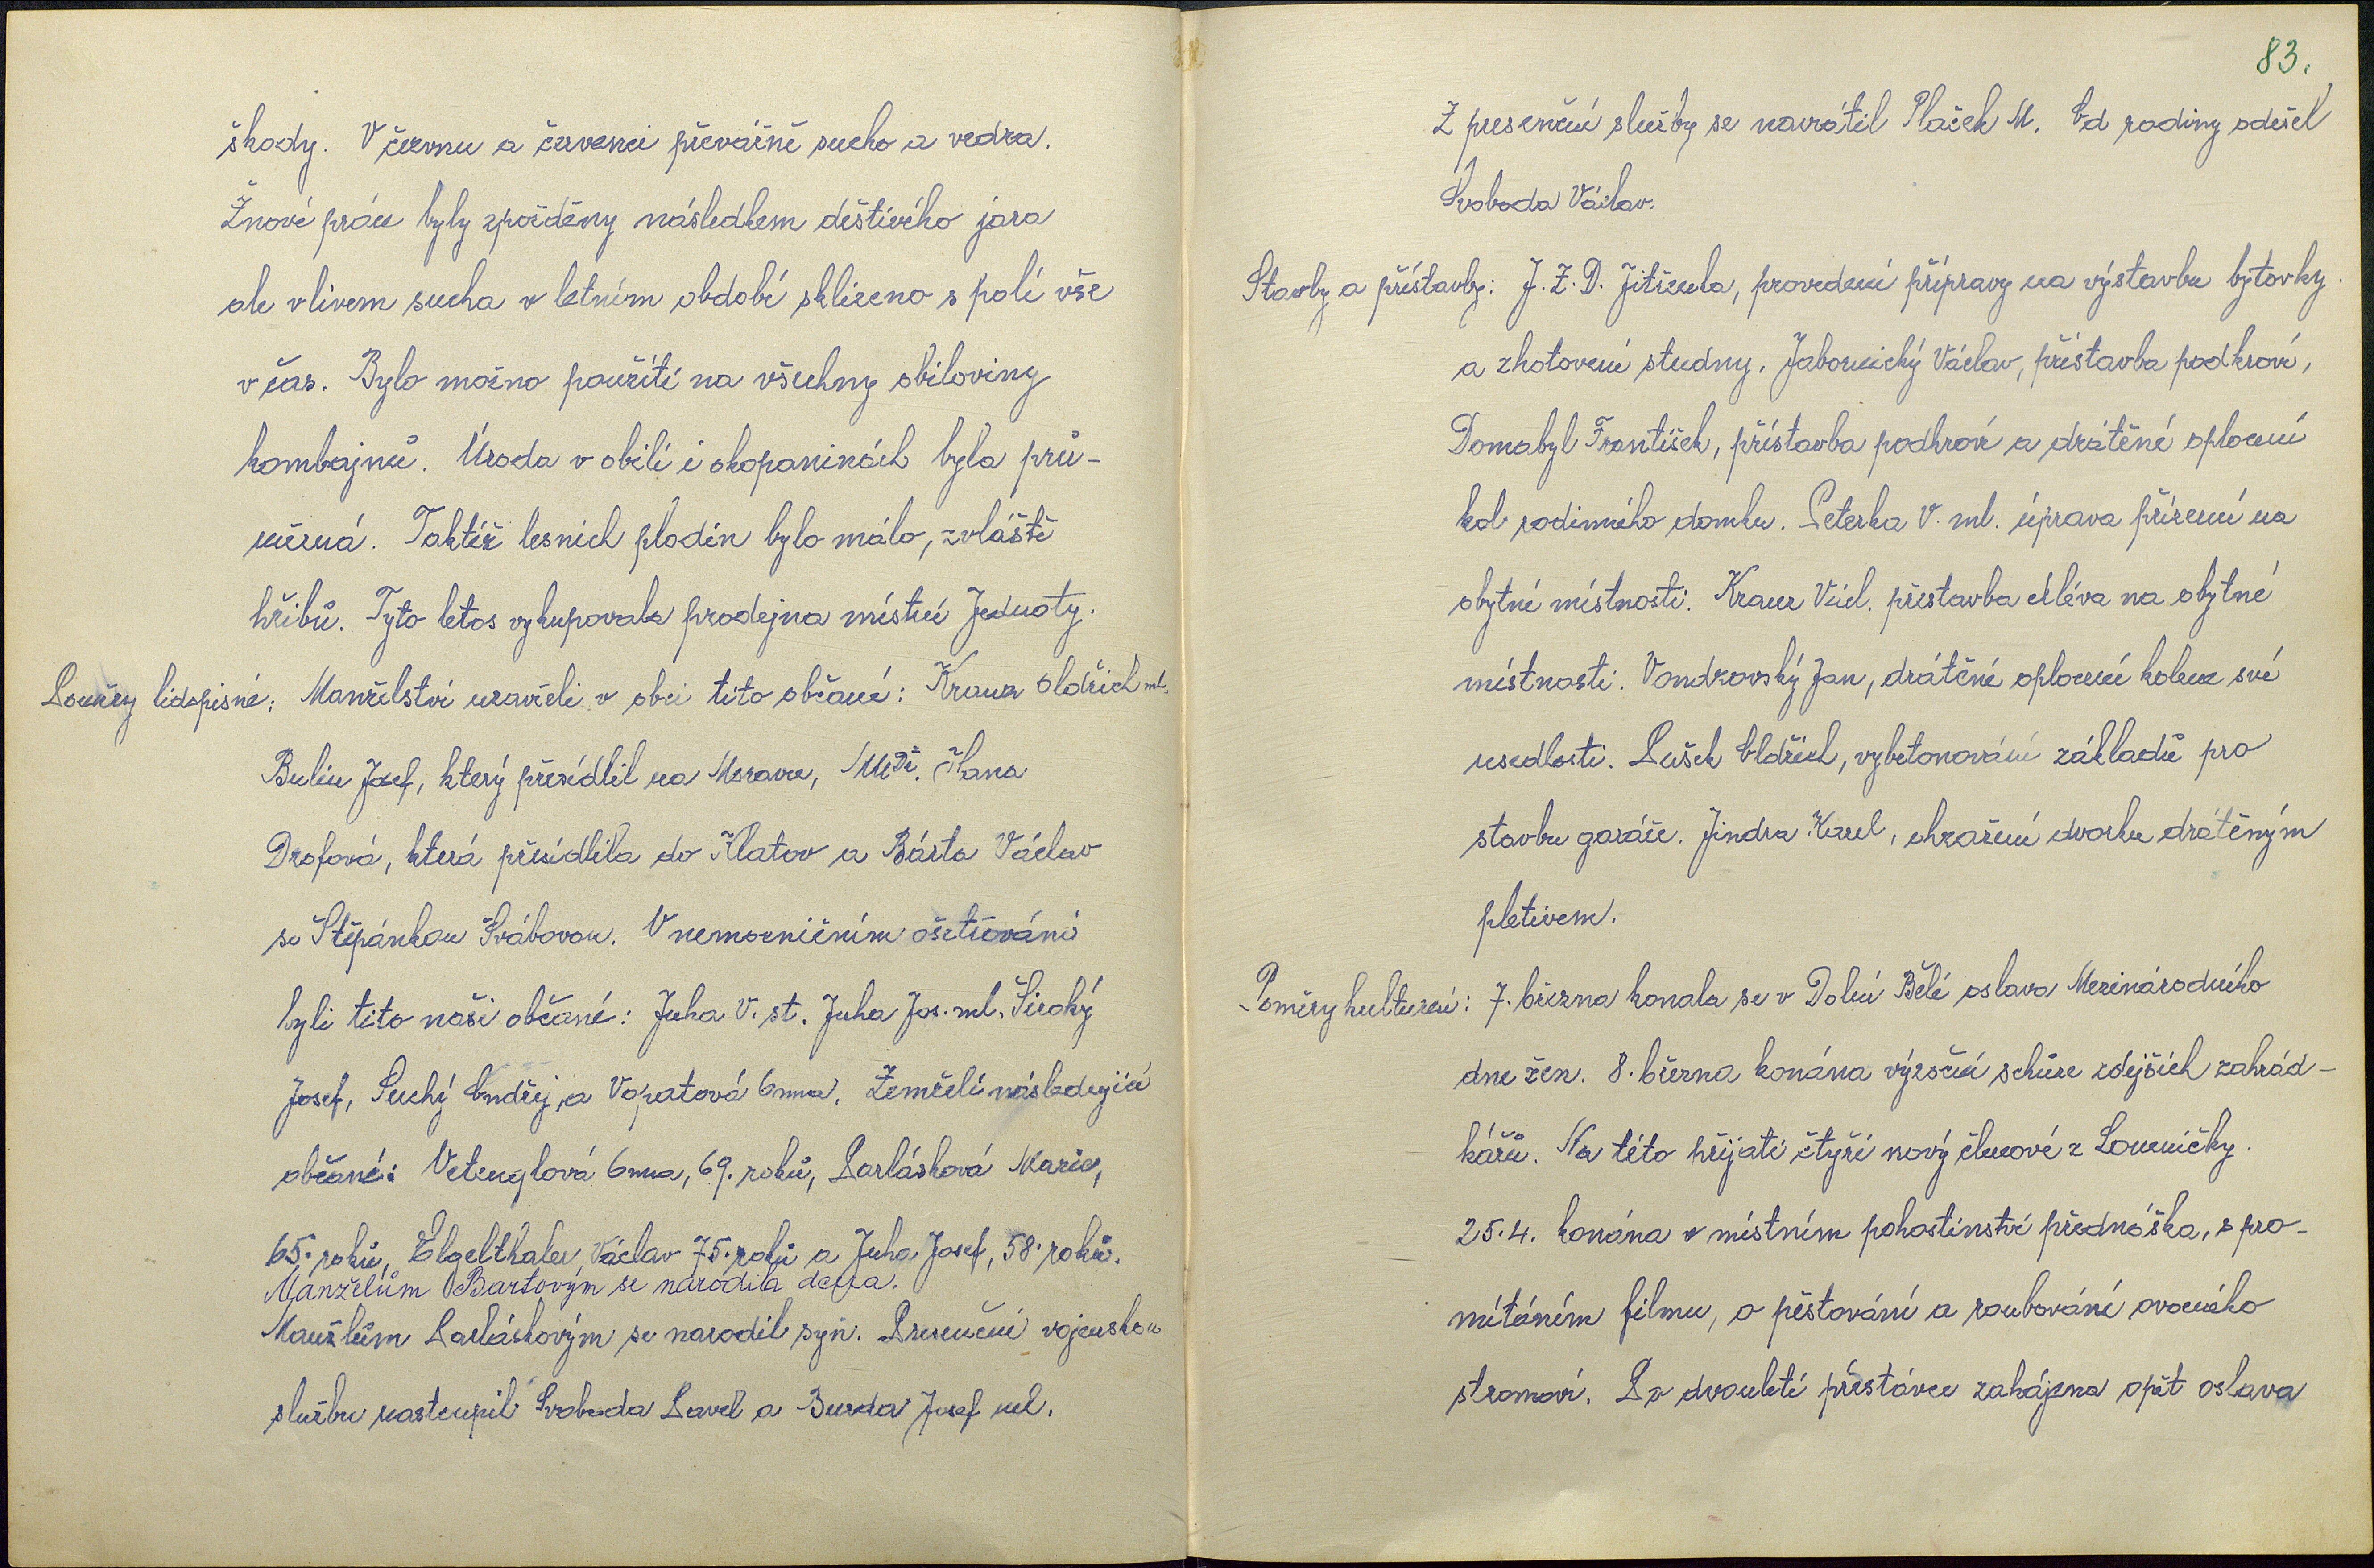 škody. V červnu a červenci převážně sucho a vedra.
Žnové práce byly zpožděny následkem deštivého jara
ale vlivem sucha v letním období sklizeno s polí vše
v čas. Bylo možno použíti na všechny obiloviny
kombajnů. Úroda v obilí i okopaninách byla prů-
měrná. Taktéž lesních plodin bylo málo, zvláště
hřibů. Tyto letos vykupovala prodejna místní Jednoty.
Poměry lidopisné: Manželství uzavřeli v obci tito občané: Kraus Oldřich ml.
Bulín Josef, který přesídlil na Moravu, MUDr. Hana
Drofová, která přesídlila do Klatov a Bárta Václav
se Štěpánkou Švábovou. V nemocničním ošetřování
byli tito naši občané: Juha V. st. Juha Jos. ml. Široký
Josef, Suchý Ondřej, a Vopatová Anna. Zemřeli následující
občané: Vetenglová Anna, 69. roků, Parlásková Marie,
65. roků, Elgelthaler Václav 75. roků a Juha Josef, 58. roků.
Manželům Bartovým se narodila dcera.
Manželům Parláskovým se narodil syn. Presenční vojenskou
službu nastoupil Svoboda Pavel a Burda Josef ml.
83.
Z presenční služby se navrátil Plaček M. Od rodiny odešel
Svoboda Václav.
Stavby a přístavby: J.Z.D. Jitřenka, provedení přípravy na výstavbu bytovky
a zhotovení studny. Jabornický Václav, přístavba podkroví,
Domabyl František, přístavba podkroví a drátěné oplocení
kol rodinného domku. Peterka V. ml. úprava přízemí na
obytné místnosti. Kraus Václ. přestavba chléva na obytné
místnosti. Vondrovský Jan, drátěné oplocení kolem své
usedlosti. Pušek Oldřich, vybetonování základů pro
stavbu garáže. Jindra Karel, ohražení dvorku drátěným
pletivem.
Poměry kulturní: 7. března konala se v Dolní Bělé oslava Mezinárodního
dne žen. 8. března konána výroční schůze zdejších zahrád-
kářů. Na této přijati čtyři nový členové z Loumičky.
25.4. konána v místním pohostinství přednáška, s pro-
mítáním filmu, o pěstování a roubování ovocného
stromoví. Po dvouleté přestávce zahájena opět oslava